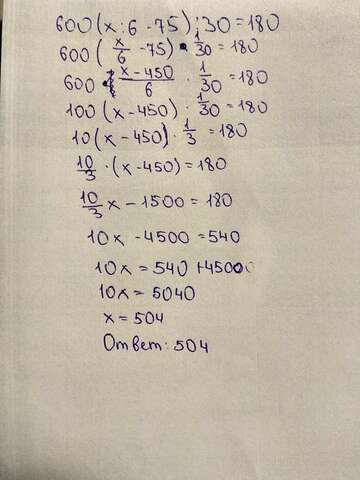 600(x:6-75):30=180
600(x/6-75)·1/30=180
600·x-450/6·1/30=180
100(x-450)·1/30=180
10(x-450)·1/3=180
10/3·(x-450)=180
10/3x-1500=180
10x-4500=540
10x=540+4500
10x=5040
x=504
Ответ: 504